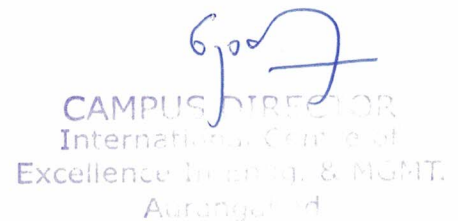 CAMPUS DIRECTOR
International Centre of
Excellence In Engg. & MGMT.
Aurangabad